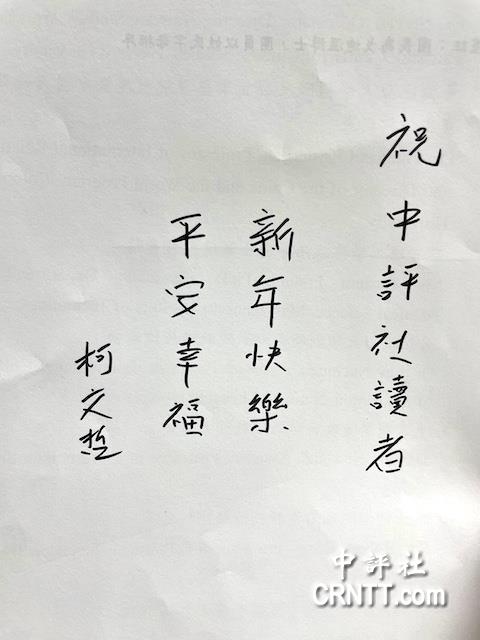 祝中評社讀者
新年快樂
平安幸福
柯文哲
中評社
CRNTT.com